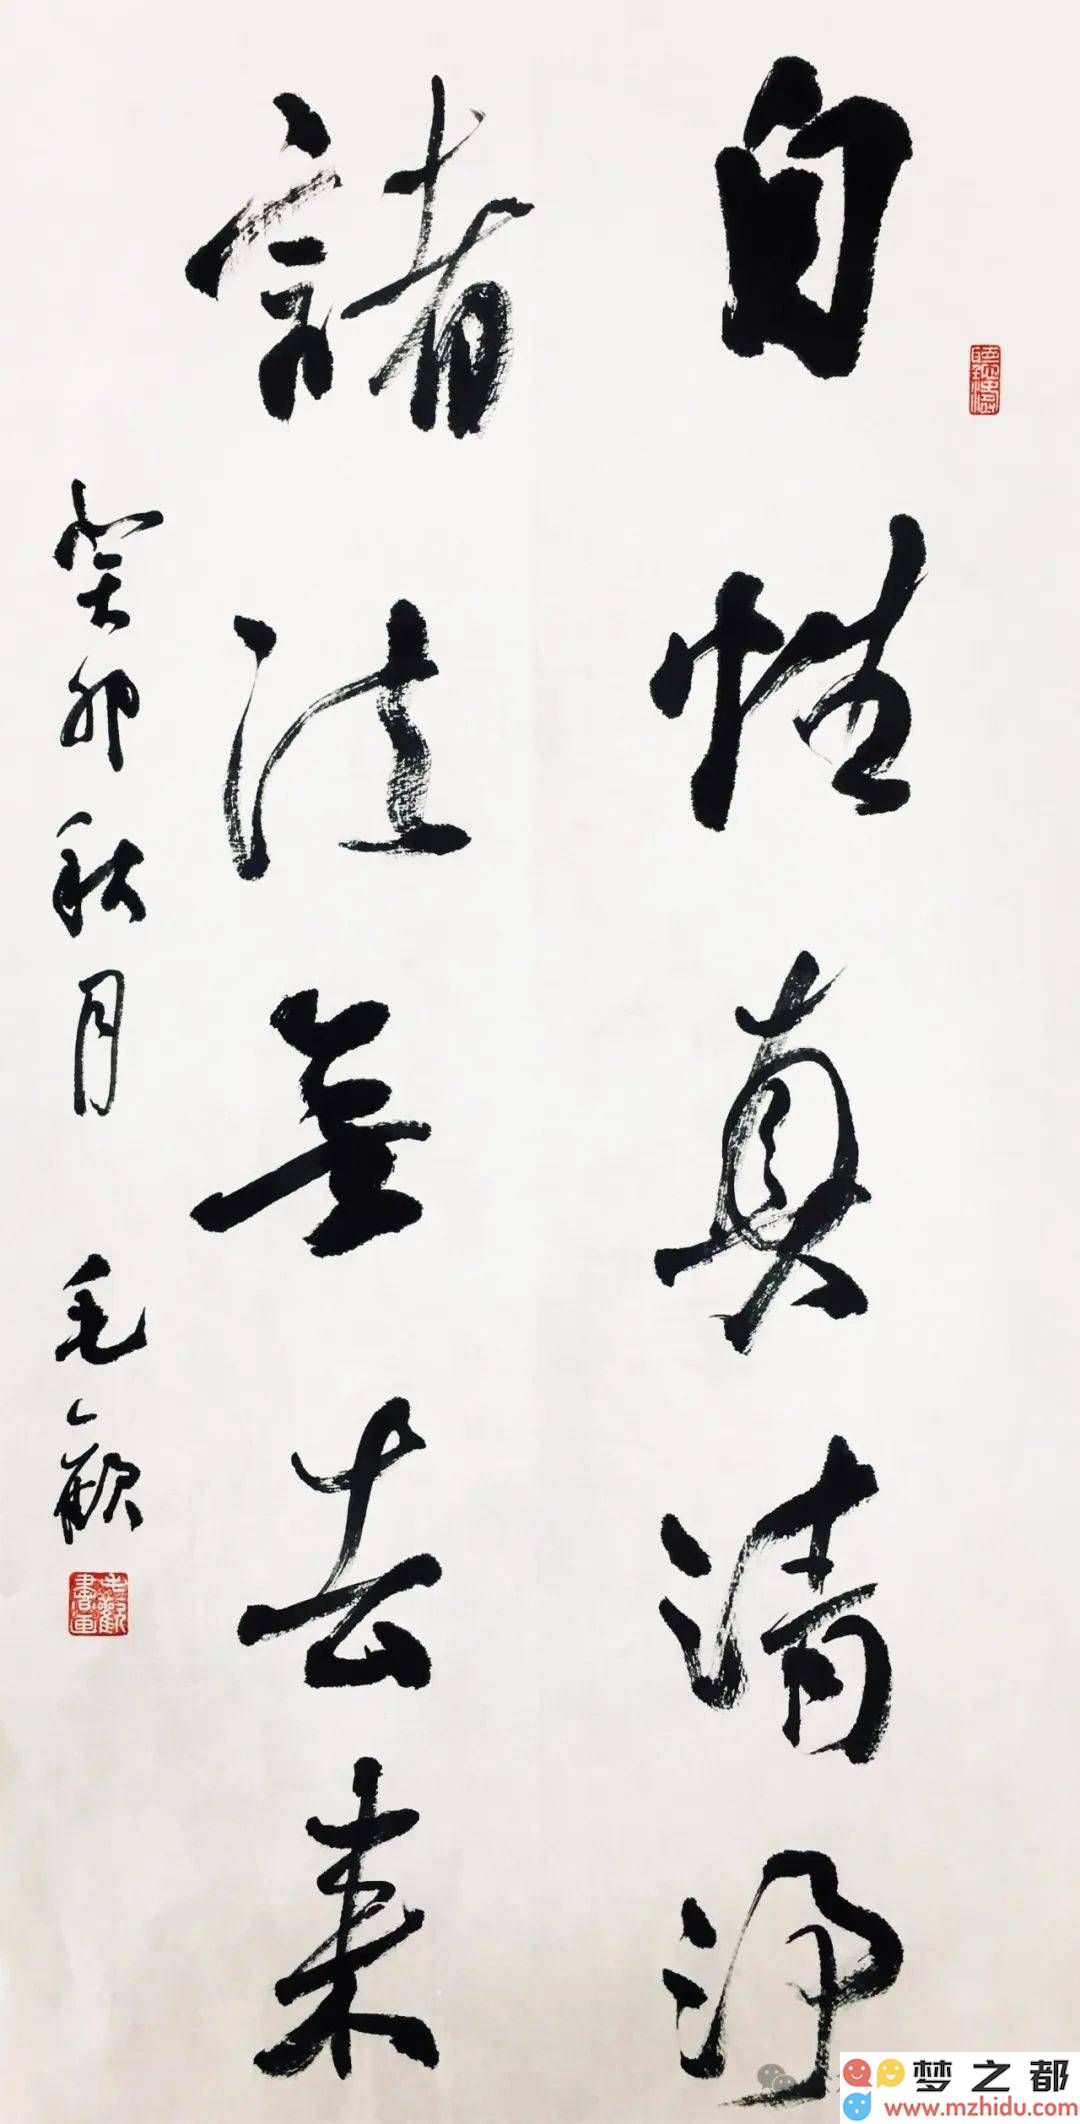 自性真清净
諸法無去来
癸卯秋月 毛欢
梦之都
www.mzhidu.com